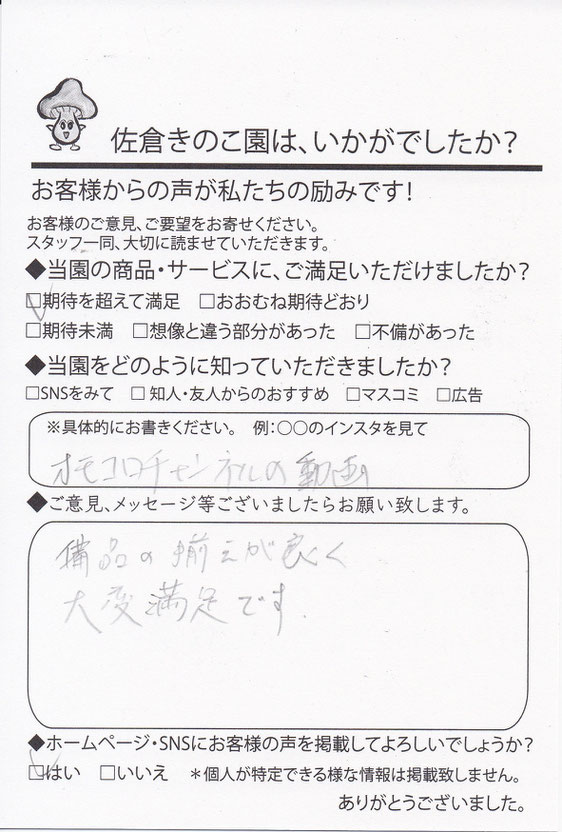 佐倉きのこ園は、いかがでしたか?
お客様からの声が私たちの励みです!
お客様のご意見、ご要望をお寄せください。
スタッフ一同、大切に読ませていただきます。
◆当園の商品・サービスに、ご満足いただけましたか?
☑期待を超えて満足 □おおむね期待どおり
□期待未満 □想像と違う部分があった □不備があった
◆当園をどのように知っていただきましたか?
□SNSをみて □知人・友人からのおすすめ □マスコミ □広告
※具体的にお書きください。 例:○○のインスタを見て
オモコロチャンネルの動画
◆ご意見、メッセージ等ございましたらお願い致します。
備品の揃えが良く
大変満足です.
◆ホームページ・SNSにお客様の声を掲載してよろしいでしょうか?
☑はい □いいえ *個人が特定できる様な情報は掲載致しません。
ありがとうございました。